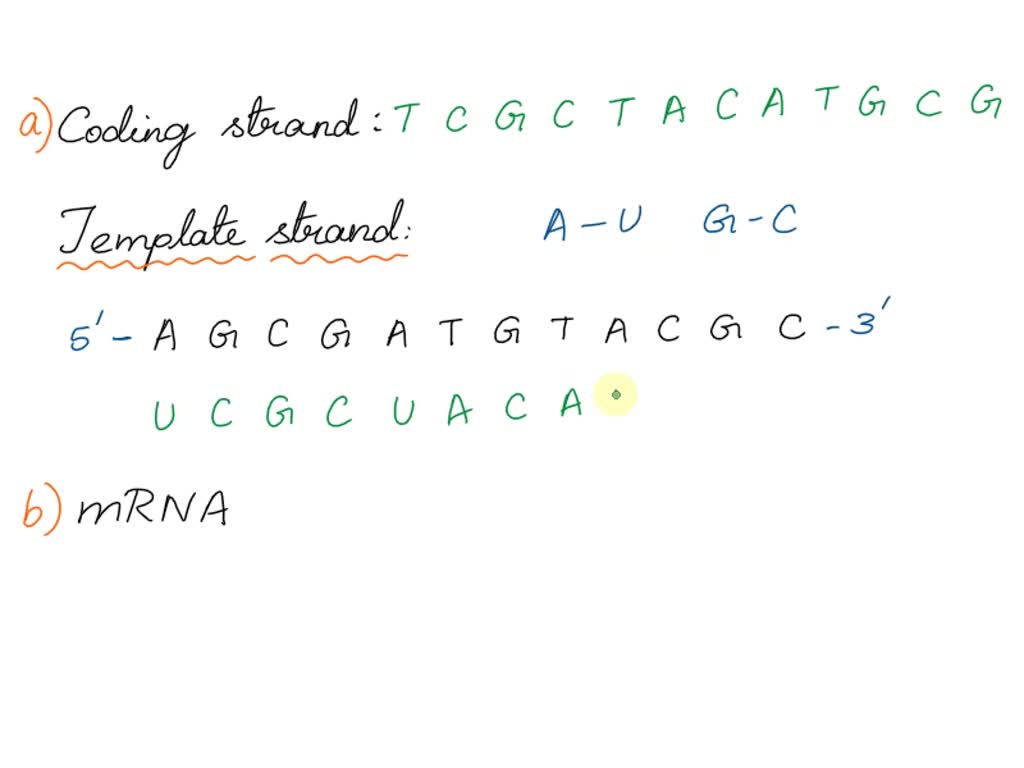 a) Coding strand: T C G C T A C A T G C G
Template strand: A - U G - C
5' - A G C G A T G T A C G C - 3'
U C G C U A C A
b) mRNA